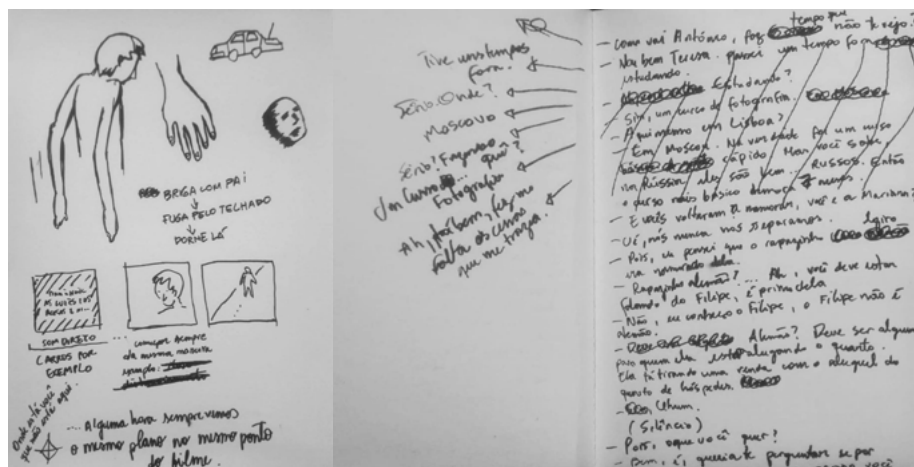 BRIGA COM PAI
FUGA PELO TELHADO
DORME LÁ
SOM DIRETO
CARROS POR
EXEMPLO
... começar sempre
da mesma maneira
exemplo:
Onde está você
que não está aqui
... Alguma hora sempre vemos
o mesmo plano no mesmo ponto
do filme.
Tive uns tempos
fora.
Sério. Onde?
Moscovo
Sério! Fazendo
quê?
Um curso ...
Fotografia
Ah, tá bem, fez-me
falta os
que me
- Como vai António, faz tempo que não te vejo?
- Vou bem Teresa. Passei um tempo fora
estudando.
- Estudando?
- Sim, um curso de fotografia.
- Aqui mesmo em Lisboa?
- Em Moscou. Na verdade foi um curso
básico rápido. Mas você sabe,
na Rússia, eles são bem... Russos. Então
o curso mais básico demora 7 meses.
- E vocês voltaram a namorar, você e a Mariana?
- Ué, nós nunca nos separamos.
- Pois, eu pensei que o rapazinho giro
era namorado dela.
- Rapazinho alemão? ... Ah, você deve estar
falando do Filipe, é primo dela
- Não, eu conheço o Filipe, o Filipe não é
alemão.
- Alemão? Deve ser alguém
para quem ela está alugando o quarto.
Ela tá tirando uma renda com o aluguel do
quarto de hóspedes.
- Uhum.
(Silêncio)
- Pois, o que você quer?
- Bem, é, queria te perguntar se por
você